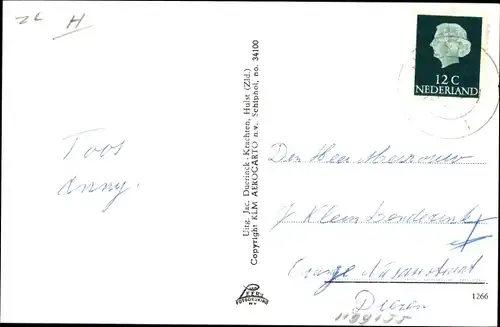 ZL H
12 C
NEDERLAND
Toos
Anny.
Uitg. Jac. Duerinck-Krachten, Hulst (Zld.)
Copyright KLM AEROCARTO n.v. Schiphol, no. 34100
Den Heer
J Klein
Oranje Nassaustraat
Dieren
1266